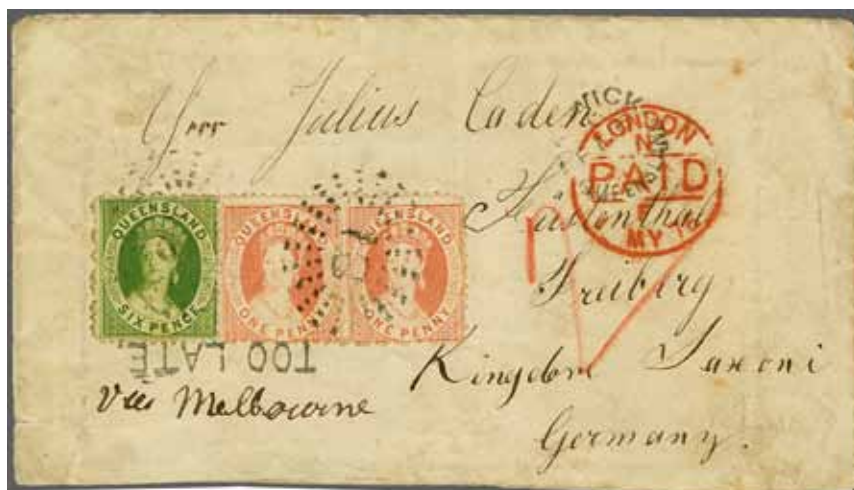 Herr Julius Caden
LONDON
N
PAID
MY 1
Freiberg
Kingdom Saxoni
Germany.
QUEENSLAND
SIX PENCE
QUEENSLAND
ONE PENNY
QUEENSLAND
ONE PENNY
TOO LATE
Via Melbourne